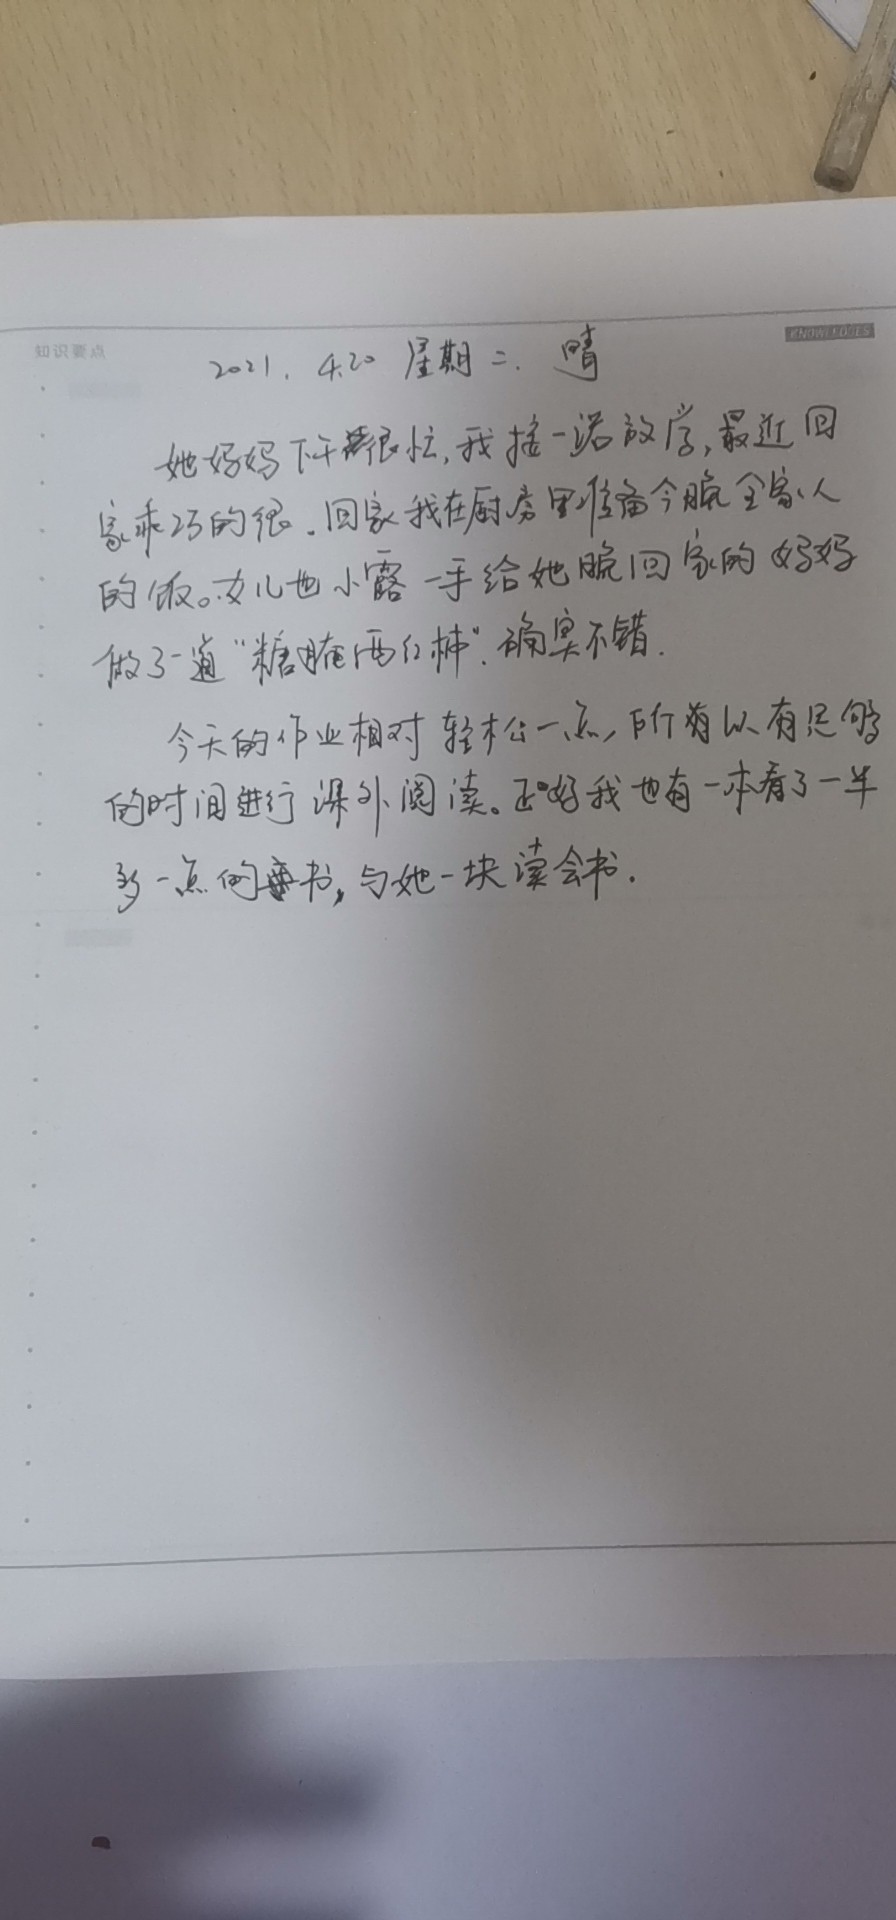 知识要点
KNOWLEDGES
2021. 4.20 星期二. 晴
她妈妈下午很忙,我接一诺放学,最近回
家乖巧的很.回家我在厨房里准备今晚全家人
的饭。女儿也小露一手给她晚回家的妈妈
做了一道“糖腌西红柿”.确实不错.
今天的作业相对轻松一点,所有以有足够
的时间进行课外阅读。正好我也有一本看了一半
多一点的书,与她一块读会书.